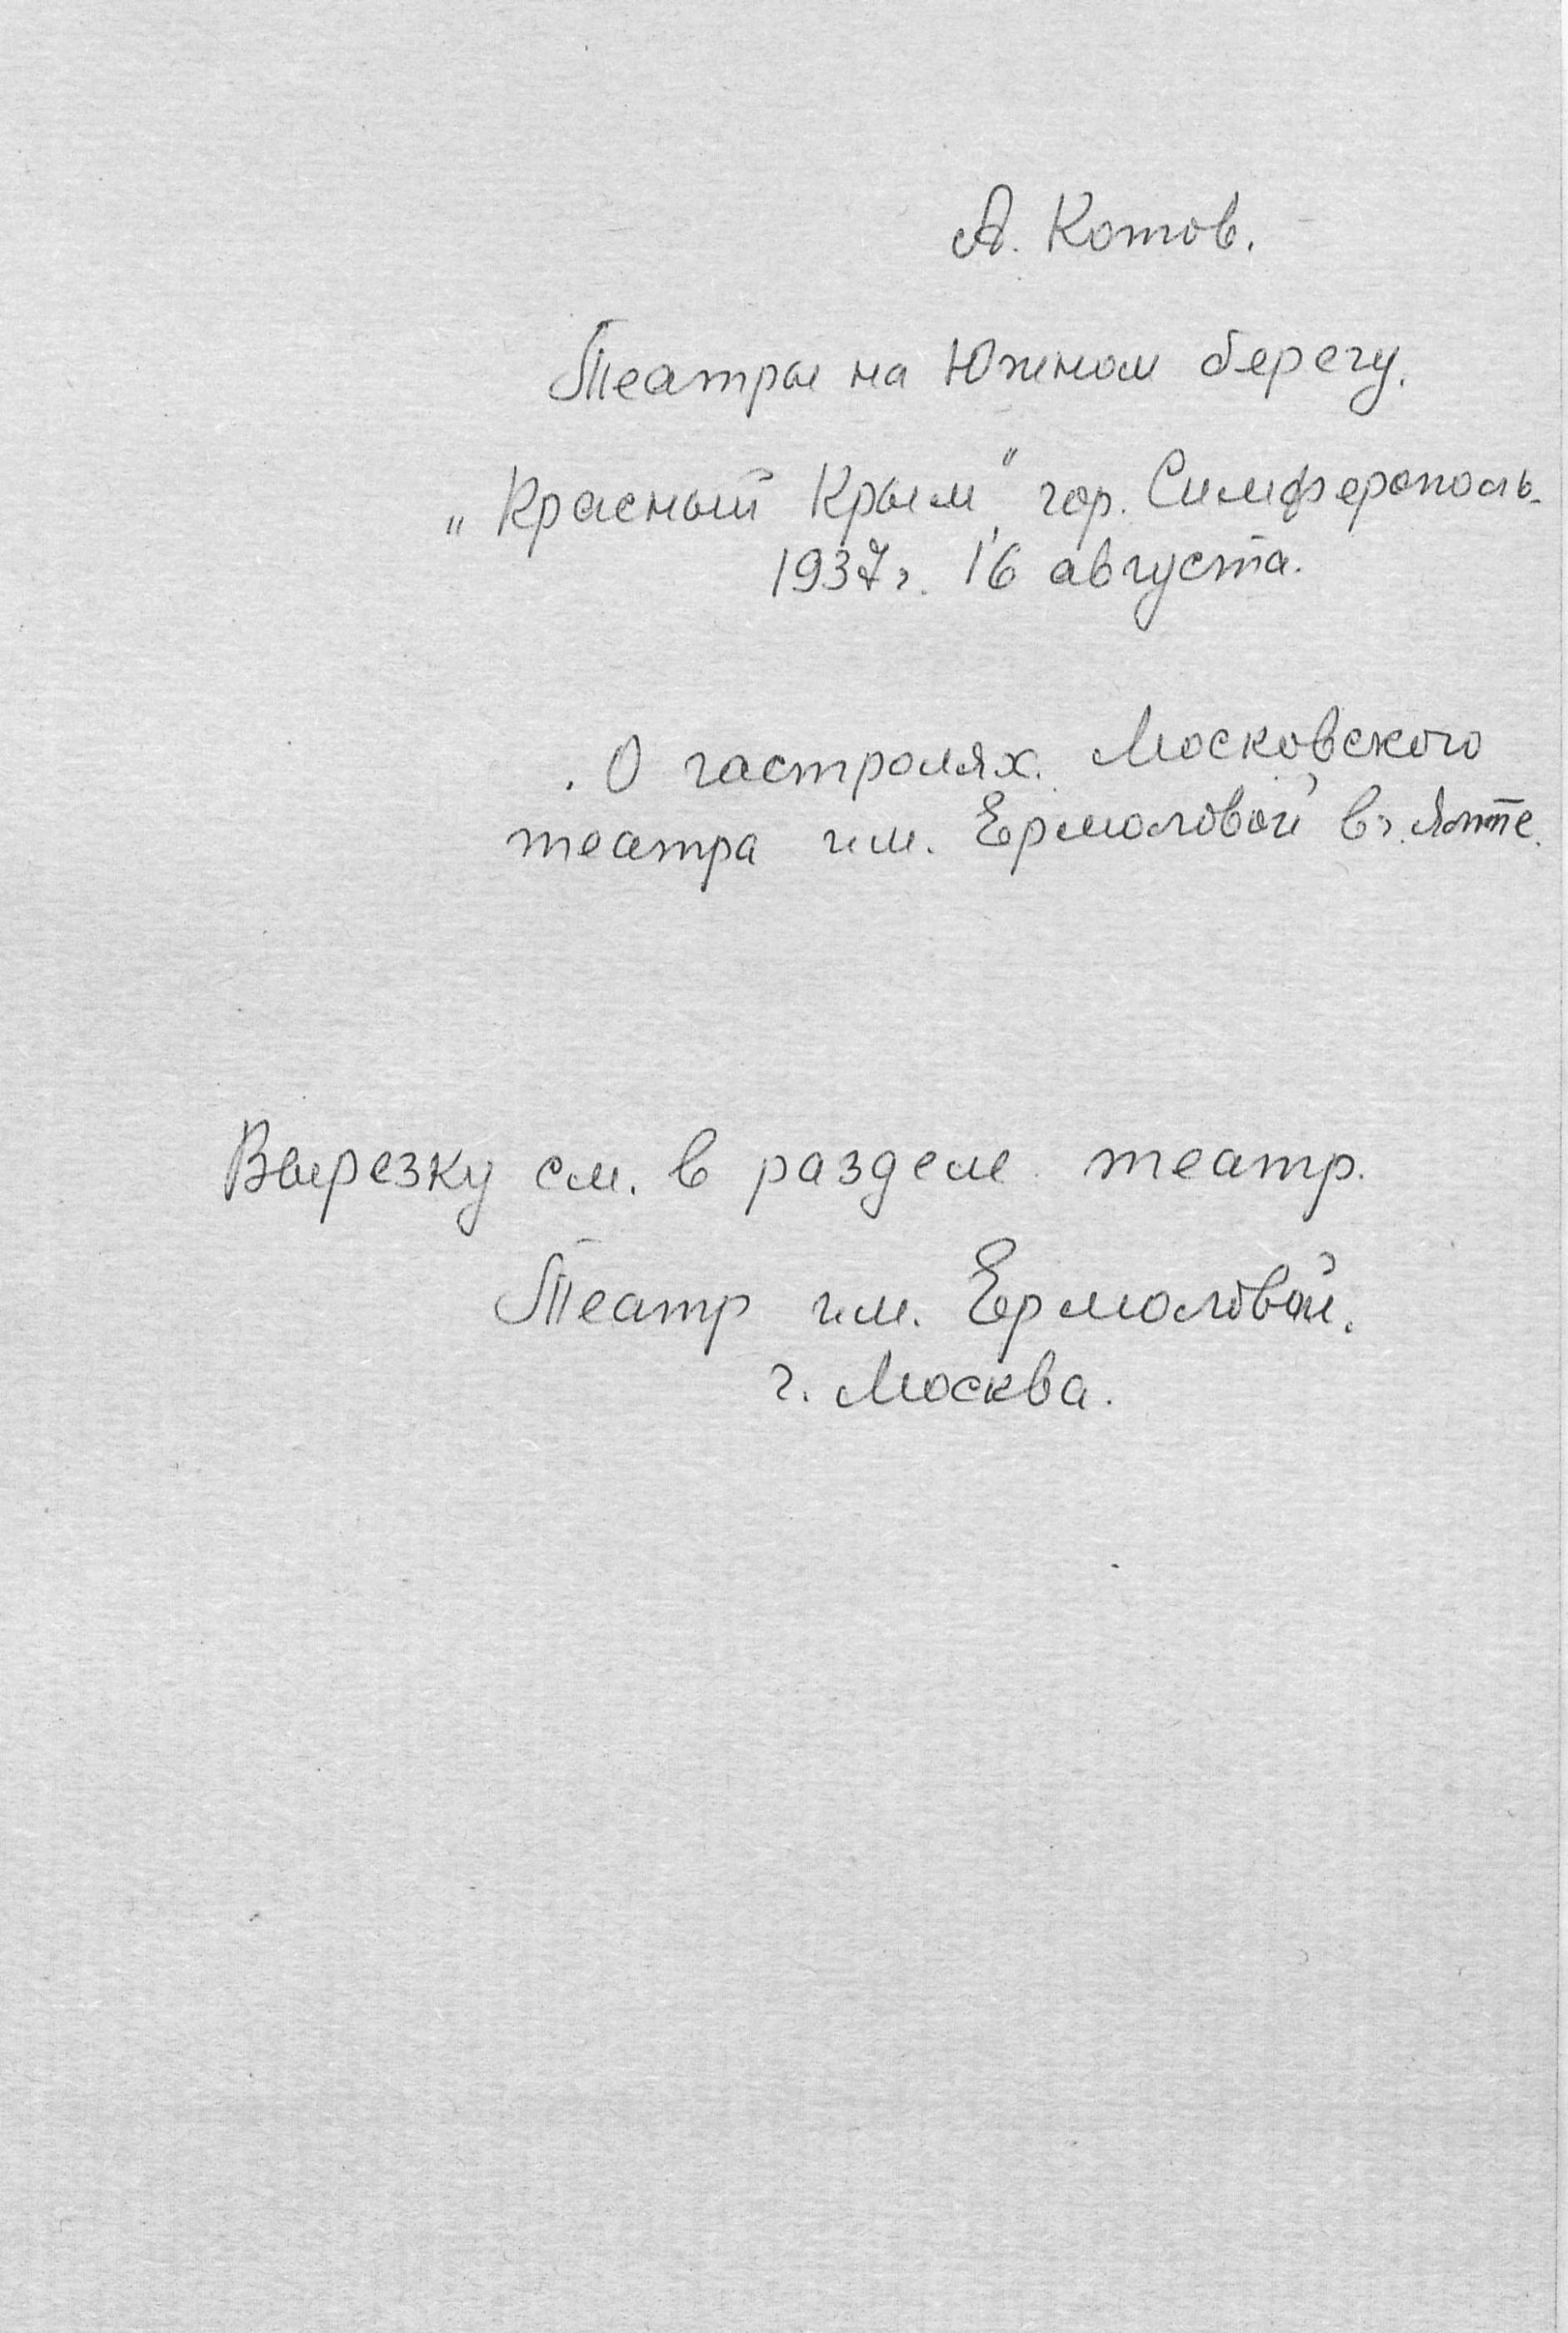 А. Котов.
Театры на Южном берегу.
„Красный Крым" гор. Симферополь.
1937г. 16 августа.
О гастролях Московского
театра им. Ермоловой в г. Ялте.
Вырезку см. в разделе театр.
Театр им. Ермоловой.
г. Москва.